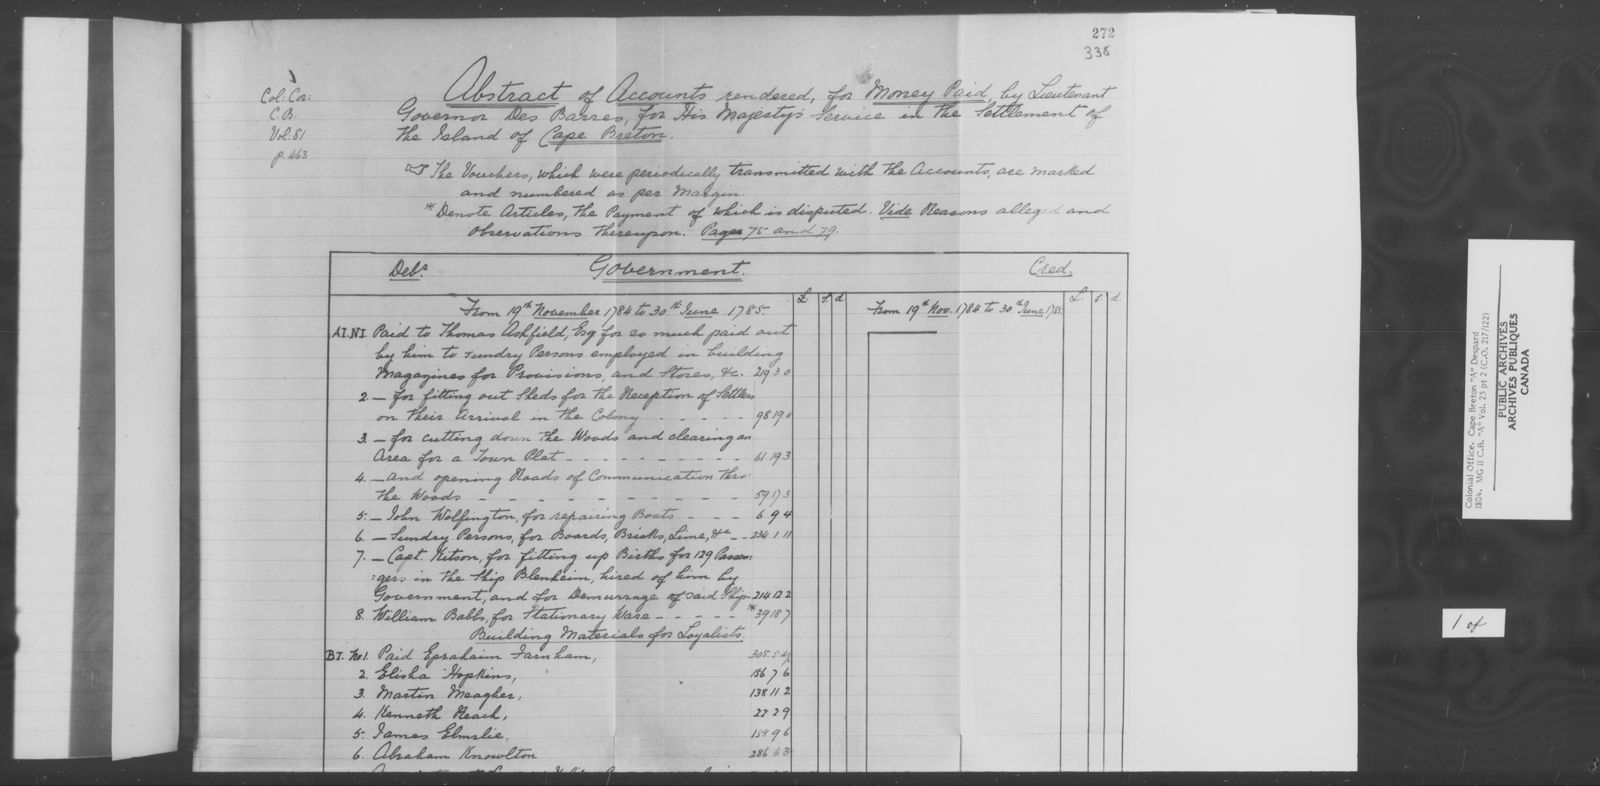 272
338
Col: Cor:
C.B.
Vol: 81
p. 463
Abstract of Accounts rendered, for Money Paid, by Lieutenant
Governor Des Barres, for His Majesty's Service in the Settlement of
the Island of Cape Breton.
The Vouchers, which were periodically transmitted with the Accounts, are marked
and numbered as per Margin.
* Denote Articles, the Payment of which is disputed. Vide Reasons alleged and
Observations thereupon. Pages 75 and 79.
Debr. Government. Cred.
£. s. d £. s. d.
From 19th November 1784 to 30th June 1785. From 19th Nov. 1784 to 30th June 1785
A1.N1. Paid to Thomas Ashfield, Esq for so much paid out
by him to sundry Persons employed in building
Magazines for Provisions, and Stores, &c. 219 3 0
2 — for fitting out Sheds for the Reception of Settlers
on their Arrival in the Colony - - - - - 98 19 0
3. — for cutting down the Woods and clearing an
Area for a Town Plat - - - - - - - - - 61 19 3
4. — and opening Roads of Communication thro'
the Woods - - - - - - - - - - 59 17 3
5 — John Wolfington, for repairing Boats - - - 6 9 4
6 — Sundry Persons, for Boards, Bricks, Lime, &c - - 234 1 11
7. — Capt. Kitson, for fitting up Births for 129 Passen:
:gers in the Ship Blenheim, hired of him by
Government, and for Demurrage of said Ship. 214 12 2
8. William Babbs, for Stationary Ware - - - - - * 39 18 7
Building Materials for Loyalists.
B1. No1. Paid Eprahaim Farnham, 305 5
2. Elisha Hopkins, 156 7 6
3. Martin Meagher, 138 11 2
4. Kenneth Reach, 22 2 9
5. James Elmslie, 158 9 6
6. Abraham Knowlton 286 6 3
Colonial Office. Cape Breton "A" Despard
1804. MG 11 C.B. "A" Vol. 25 pt 2 (C.O. 217/122)
PUBLIC ARCHIVES
ARCHIVES PUBLIQUES
CANADA
1 of
3